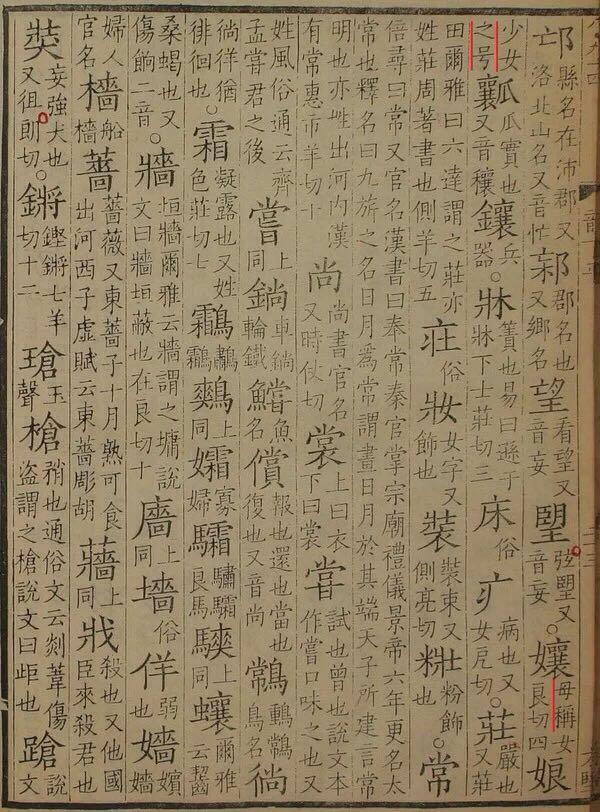 邙縣名在沛郡又洛北山名又音忙郭名也又鄉名望看望又音妄朢弦朢又音妄。孃母稱女良切四娘
少女之号瓤瓜實也又音穰鑲兵器。牀簀也易曰遜于牀下士莊切三床俗疒病也又女戹切。莊嚴也又莊
田爾雅曰六達謂之莊亦姓莊周著書也側羊切五庄俗妝女字又飾也裝裝束又側亮切粧粉飾也。常
倍尋曰常又官名漢書曰秦常秦官掌宗廟禮儀景帝六年更名太常也釋名曰九旂之名日月爲常謂畫日月於其端天子所建言常
明也亦姓出河內漢有常惠市羊切十尚尚書官名又時仗切裳上曰衣下曰裳甞試也曾也說文本作嘗口味之也又
姓風俗通云齊孟嘗君之後嘗上同鋿車鋿輪鐵鱨魚名償報也還也當也復也又音尚鳥名徜
徜徉猶徘徊也。霜凝露也又姓色莊切七鸘鷫鸘鷞上同孀寡婦驦驌驦良馬騻上同蠰爾雅云齧
桑蝎也又傷餉二音。牆垣牆爾雅云牆謂之墉說文曰牆垣蔽也在良切十廧上同墻俗佯弱也嬙嬪嬙
婦人官名檣船檣薔薔薇又東薔子十月熟可食出河西子虛賦云東薔彫胡蘠上同戕殺也又他國臣來殺君也
奘妄強犬也又徂朗切。鏘鏗鏘七羊切十二瑲玉聲槍矟也通俗文云剡葦傷盜謂之槍說文曰歫也蹌說文